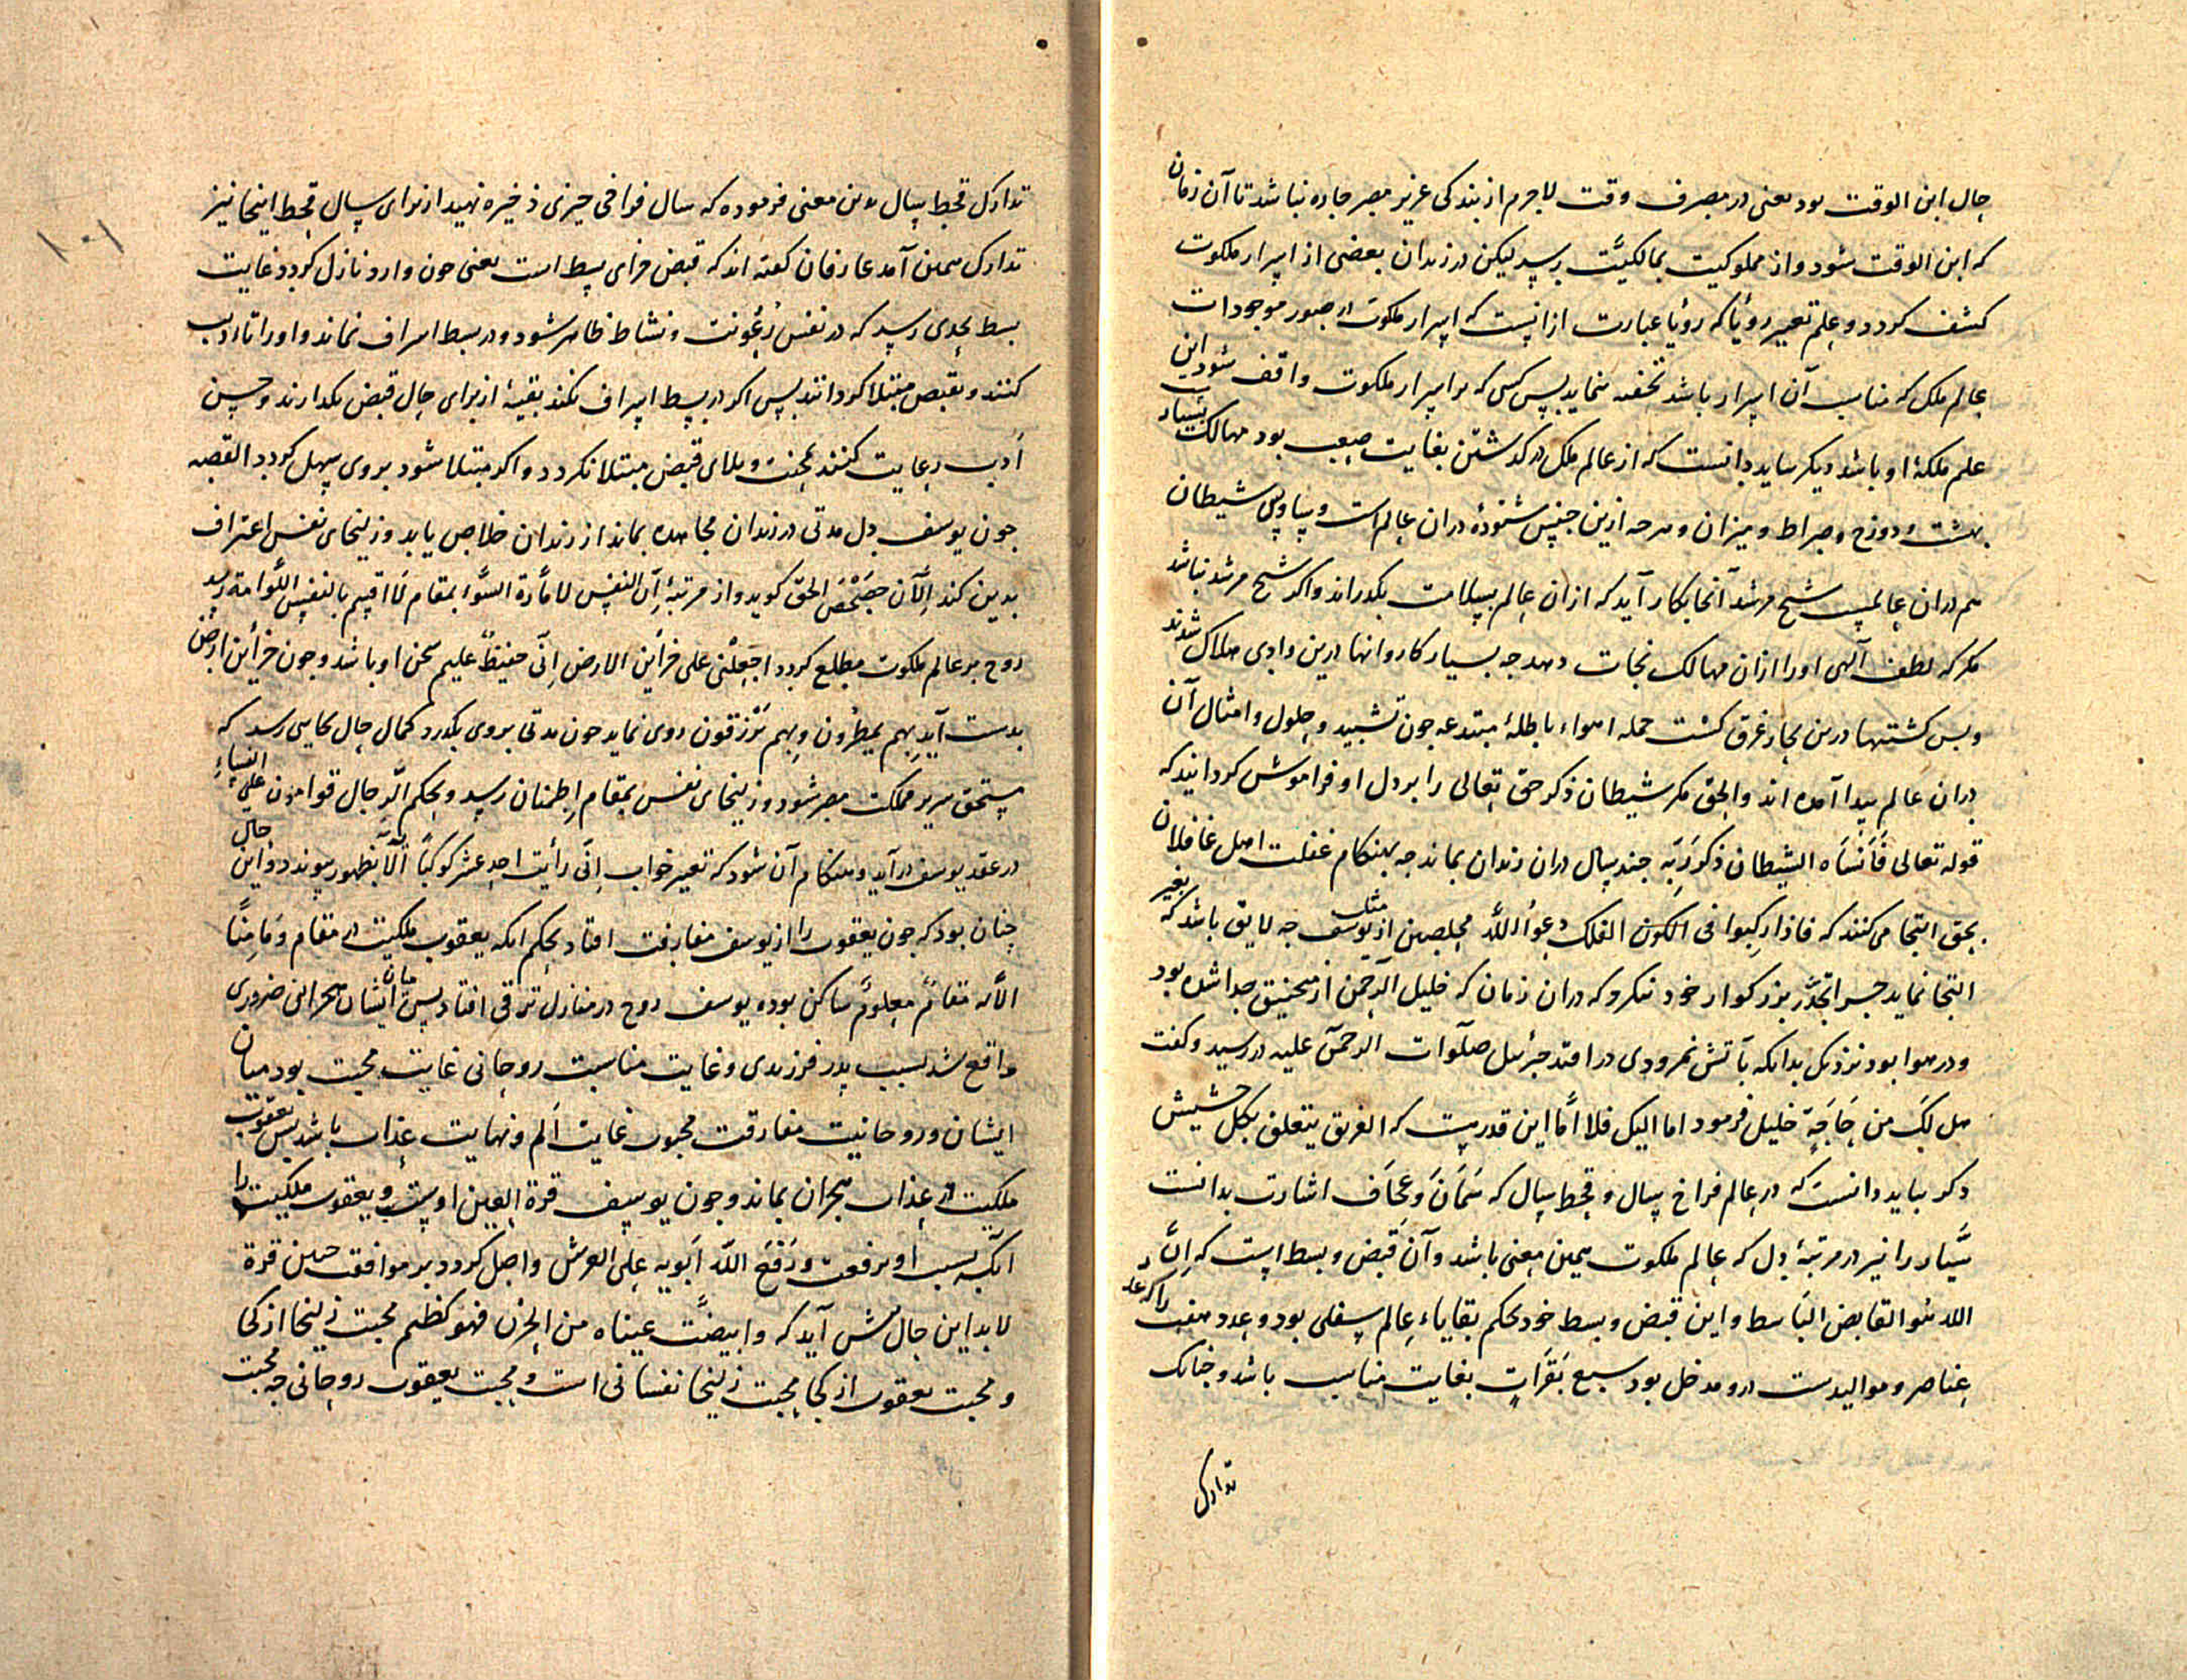 حال ابن الوقت بود یعنی در مصرف وقت لاجرم از بندکی عزیز مصر جاره نباشد تا آن زمان
که ابن الوقت شود و از مملوکیت بمالکیّت رسد لیکن در زندان بعضی از اسرار ملکوت
کشف کردد و علم تعبیر رویا که رؤیا عبارت ازانست که اسرار ملکوت در صور موجودات
عالم ملک که مناسب آن اسرار باشد تحفه نماید بس کسی که بر اسرار ملکوت واقف شود این
علم ملکهٔ او باشد دیکر بباید دانست که از عالم ملک در کدشتن بغایت صعب بود مهالک بسیار
بهشت و دوزخ و صراط و میزان و هرجه ازین جنس شنودهٔ دران عالم است و بیاوپی شیطان
هم دران عالمست شیخ مرشد آنجا بکار آید که ازان عالم بسلامت بکدراند و اکر شیخ مرشد نباشد
مکر که لطف آلهی او را ازان مهالک نجات دهد جه بسیار کاروانها درین وادی هلاک شدند
و بس کشتیها درین بحار غرق کشت جمله اهواء باطلهٔ مبتدعه جون تشبیه و حلول و امثال آن
دران عالم پیدا آمده اند و الحق مکر شیطان ذکر حق تعالی را بر دل او فراموش کردانید که
قوله تعالی فَاَنْسَاه الشیطان ذکر رَبِّه جند سال دران زندان بماند جه بهنکام غفلت اهل غافلان
بحق التجا می کنند که فاذا رکبوا فی الفلک دعوُا اللّٰه مخلصین از مثل یوسف جه لایق باشد که بغیر
التجا نماید جرا بجدّ بزرکوار خود ننکرد که دران زمان که خلیل الرحمن از منجنیق جدا شده بود
و در هوا بود نزدیک بدانکه بآتش نمرودی در افتد جبرئیل صلوات الرحمن علیه در رسید و کفت
هل لکَ من حَاجَةٍ خلیل فرمود اما الیک فلا امّا این قدر هست که الغریق یتعلق بکل حشیش
دکر بباید دانست که در عالم فراخ سال و قحط سال که سَمَانَ و عجَاف اشارت بدانست
سیّار را نیز در مرتبهٔ دل که عالم ملکوت همین معنی باشد و آن قبض و بسط است که اِنَّ
اللّٰه هُو القابض البَاسط و این قبض و بسط خود بحکم بقایاء عالم سفلی بود و عدد هفت را که عدد
عناصر و موالیدست درو مدخل بود سبع بَقَرَاتٍ بغایت مناسب باشد و جنانک
تدارک
۱۰۱
تدارک قحط سال بدین معنی فرموده که سال فواخی جیزی ذخیره نهید از برای سال قحط اینجا نیز
تدارک همین آمد عارفان کفته اند که قبض فرای بسط است یعنی جون وارد نازل کردد غایت
بسط بحدی رسد که در نفس رُعُونت و نشاط ظاهر شود و در بسط اسراف نماند و او را تادیب
کنند و بقبض مبتلا کردانند بس اکر در بسط اسراف نکند بقیهٔ از برای حال قبض نکدارند و حسن
اَدب رعایت کنند بمحنت و بلای قبض مبتلا نکردد و اکر مبتلا شود بروی سهل کردد القصه
جون یوسف دل مدتی در زندان مجاهده بماند از زندان خلاص یابد و زلیخای نفس اعتراف
بدین کند اَلآن حَصْحَصَ الحق کوید و از مرتبهٔ اِنّ النفس لامّارة بالسُّوء بمقام لَا اقسم بالنفس اللَّوامة رسد
روح بر عالم ملکوت مطلع کردد اجعلنی علی خزائن الارض اِنّی حفیظ علیم سخن او باشد و جون خزائن ارض
بدست آید بهم یمطرون و بهم تُرزقون روی نماید جون مدتی بروی بکدرد کمال حال بجایی رسد که
مستحق سریر مملکت مصر شود و زلیخای نفس بمقام اِطمنان رسد و بحکم الرّجال قوامون علی النساء
در عقد یوسف در آید و هنکام آن شود که تعبیر خواب اِنّی رأیت احد عشر کوکبًا الآیة بظهور پیوندد و این حال
جنان بود که جون یعقوب را از یوسف مفارقت افتاد بحکم انکه یعقوب ملکیت در مقام وَمَا مِنّا
الّا له مقامٌ معلومٌ ساکن بوده یوسف روح در منازل ترقی افتاد بس میان ایشان هجرانی ضروری
واقع شد بسبب پدر فرزندی و غایت مناسبت روحانی غایت محبت بود میان
ایشان و روحانیت مفارقت محبوب غایت اَلم و نهایت عذاب باشد بس یعقوب
ملکیت در عذاب هجران بماند و جون یوسف قرة العین اوست و یعقوب ملکیت را
انکه بسبب او برفعت و رَفَعَ اللّٰه اَبَویه علی العرش واصل کردد بر موافقت جنین قرة
لابد این حال پیش آید که وابیضّت عیناه من الحزن فهو کظیم محبت زلیخا از کجا
و محبت یعقوب از کجا محبت زلیخا نفسانی است و محبت یعقوب روحانی جه محبت